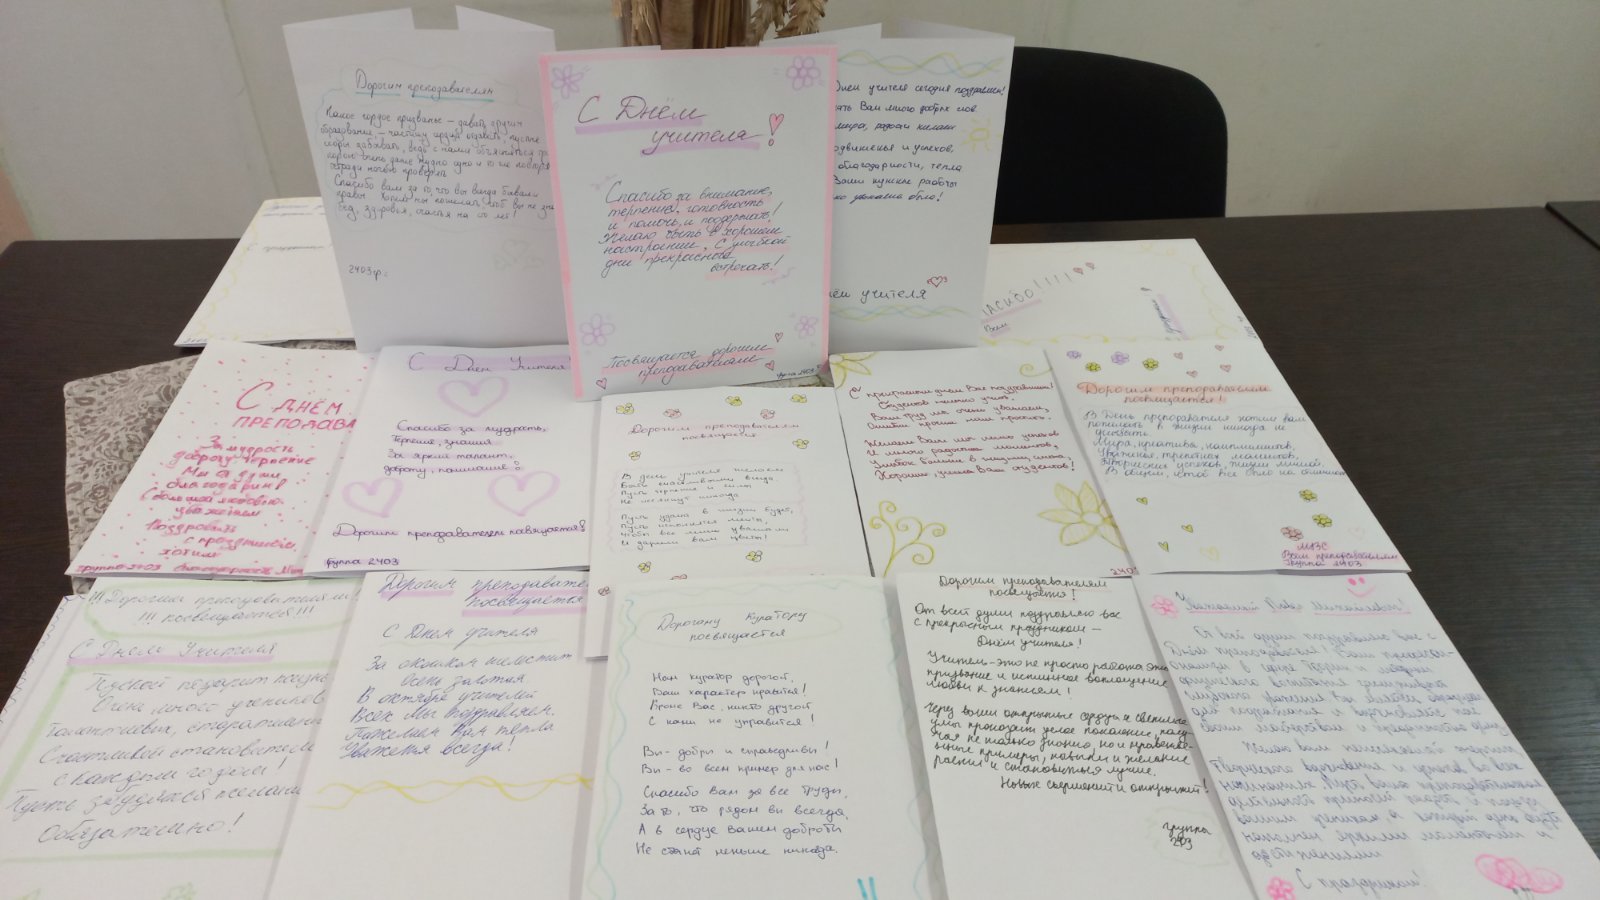 Дорогим преподавателям
Самое гордое призванье – давать другим
образование, – частицу
ссоры забывать, ведь с нами объясняться
порою очень даже нудно одно и то же
тетради ночью проверять.
Спасибо вам за то, что вы всегда бывали
правы. Хотим мы пожелать, чтоб вы не
бед, здоровья, счастья на сто лет!
2403 гр.
С Днём
учителя!
Спасибо за внимание,
терпение, готовность
и помочь, и поддержать!
Желаю быть в хорошем
настроении, с улыбкой
дни прекрасного
встречать!
Посвящается дорогим
преподавателям
группа 2403
Днем учителя сегодня поздравляем!
Вам много добрых слов
мира, радости желаем
и успехов,
благодарности, тепла
Ваши нужные работы
уважаема была!
учителя
Всем
С ДНЁМ
ПРЕПОДАВА
За мудрость
доброту терпение
Мы от души
благодарим!
С большой любовью
уважением
Поздравить
с праздником
хотим
группа 2403
С Днем Учителя
Спасибо за мудрость,
Терпение, знания
За яркий талант,
доброту, понимание!
Дорогим преподавателям посвящается!
Группа 2403
Дорогим преподавателям
посвящается
В день учителя желаем
Быть счастливыми всегда.
Пусть терпение и силы
Не иссякнут никогда
Пусть удача в жизни будет,
Пусть исполнятся мечты,
Чтобы все люди уважали
И дарили вам цветы!
С прекрасным днем Вас поздравляем!
Студентов нелегко учить.
Ваш труд мы очень уважаем,
Ошибки просим нам простить.
Желаем Вам мы лишь успехов
И много радостных моментов,
Улыбок больше в жизни, смеха,
Хороших, умных Вам студентов!
2403
Дорогим преподавателям
посвящается!
В День преподавателя хотим вам
пожелать в жизни никогда не
унывать
Мира, креатива, комплиментов,
Уважения, приятных моментов,
Творческих успехов, жизни личной.
В общем, чтоб все было на отлично
Всем преподавателям
Группа 2403
!!! Дорогим преподавателям!
!!! посвящается!!!
С Днем Учителя
Пускай подарит жизнь
Очень много учеников
Талантливых, старательных
Счастливей становитесь
с каждым годом!
Пусть сбудутся желания
Обязательно!
Дорогим преподавате
посвящается
С Днем учителя
За окошком шелестит
Осень золотая
В октябре учителей
Всех мы поздравляем.
Пожелаем Вам тепла
Уважения всегда!
Дорогому Куратору
посвящается
Наш куратор дорогой,
Ваш характер нравится!
Кроме Вас, никто другой
С нами не управится!
Вы - добры и справедливы!
Вы - во всем пример для нас!
Спасибо вам за все труды,
За то, что рядом вы всегда,
А в сердце вашем доброты
Не станет меньше никогда.
Дорогим преподавателям
посвящено!
От всей души поздравляю вас
с прекрасным праздником –
Днём учителя!
Учитель – это не просто работа, это
призвание и истинное воплощение
любви к знаниям!
Через ваши открытые сердца и светлые
умы проходит целое поколение, полу-
чая не только знания, но и нравствен-
ные примеры, навыки и желание
расти и становиться лучше.
Новых свершений и открытий!
Группа
2403
Уважаемый Павел Михайлович!
От всей души поздравляю вас с
Днём преподавателя! Ваш профессио-
нализм в сфере теории и методики
физического воспитания заслуживает
глубокого уважения.
Желаю вам неиссякаемой энергии,
творческого вдохновения и успехов во всех
начинаниях. Пусть ваша преподавательская
деятельность приносит радость и
вашим ученикам, а каждый день будет
наполнен яркими моментами и
достижениями
С праздником!